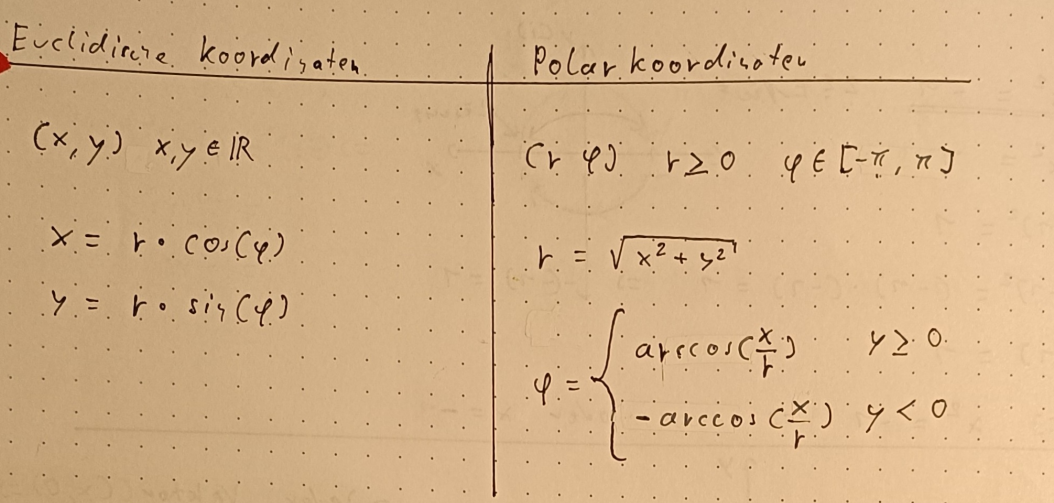 Euclidische koordinaten
(x, y) x, y ∈ ℝ
x = r • cos(φ)
y = r • sin(φ)
Polarkoordinaten
(r φ) r ≥ 0 φ ∈ [-π, π]
r = √(x² + y²)
φ = { arccos(x/r) y ≥ 0
-arccos(x/r) y < 0